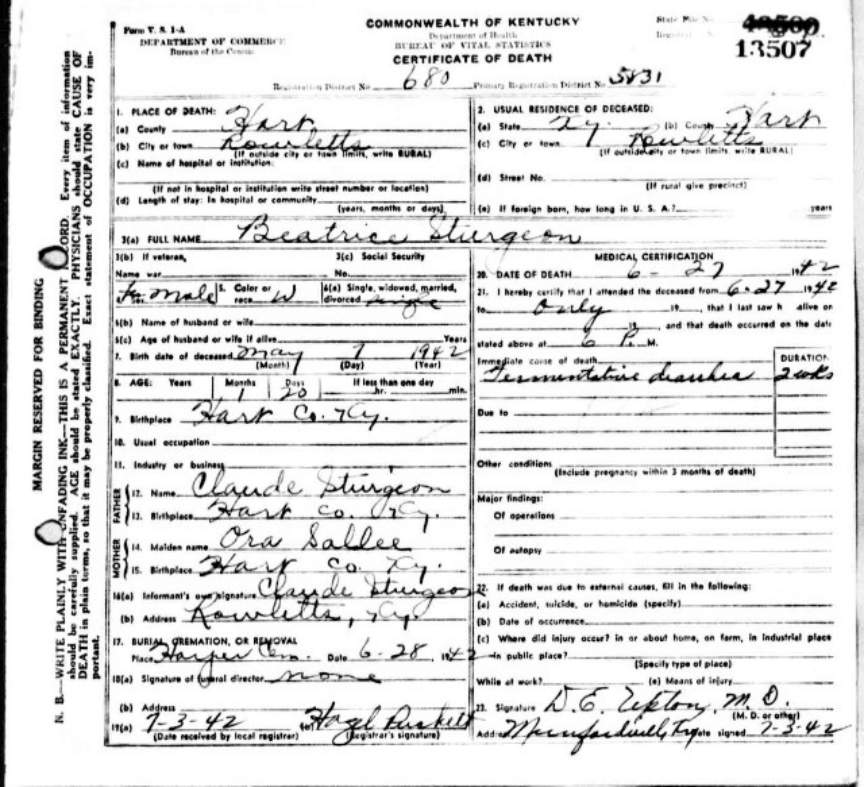 Form V. S. 1-A
DEPARTMENT OF COMMERCE
Bureau of the Census
COMMONWEALTH OF KENTUCKY
Department of Health
BUREAU OF VITAL STATISTICS
CERTIFICATE OF DEATH
State File No.
13507
Registration District No. 680 Primary Registration District No. 5831
MARGIN RESERVED FOR BINDING
N. B.—WRITE PLAINLY WITH UNFADING INK—THIS IS A PERMANENT RECORD. Every item of information
should be carefully supplied. AGE should be stated EXACTLY. PHYSICIANS should state CAUSE OF
DEATH in plain terms, so that it may be properly classified. Exact statement of OCCUPATION is very im-
portant.
1. PLACE OF DEATH:
(a) County Hart
(b) City or town Rowletts
(If outside city or town limits, write RURAL)
(c) Name of hospital or institution:
(If not in hospital or institution write street number or location)
(d) Length of stay: In hospital or community
(years, months or days)
2. USUAL RESIDENCE OF DECEASED:
(a) State Ky. (b) County Hart
(c) City or town Rowletts
(If outside city or town limits write RURAL)
(d) Street No.
(If rural give precinct)
(e) If foreign born, how long in U. S. A.? years
3(a) FULL NAME Beatrice Sturgeon
3(b) If veteran,
Name war
3(c) Social Security
No.
Female 5. Color or race W 6(a) Single, widowed, married, divorced single
6(b) Name of husband or wife
6(c) Age of husband or wife if alive Years
7. Birth date of deceased May 7 1942
(Month) (Day) (Year)
8. AGE: Years Months Days If less than one day
1 20 hr. min.
9. Birthplace Hart Co. Ky.
10. Usual occupation
11. Industry or business
FATHER
12. Name Claude Sturgeon
13. Birthplace Hart Co. Ky.
MOTHER
14. Maiden name Ora Sallee
15. Birthplace Hart Co. Ky.
16(a) Informant's own signature Claude Sturgeon
(b) Address Rowletts, Ky.
17. BURIAL, CREMATION, OR REMOVAL
Place Harper Cem. Date 6-28, 1942
18(a) Signature of funeral director none
(b) Address
19(a) 7-3-42 Hazel Puskett
(Date received by local registrar) (Registrar's signature)
MEDICAL CERTIFICATION
20. DATE OF DEATH 6-27 1942
21. I hereby certify that I attended the deceased from 6-27 1942
to only 19 , that I last saw h alive on
19 , and that death occurred on the date
stated above at 6 P. M.
Immediate cause of death DURATION
Fermentative diarrhea 2 wks
Due to
Other conditions
(Include pregnancy within 3 months of death)
Major findings:
Of operations
Of autopsy
22. If death was due to external causes, fill in the following:
(a) Accident, suicide, or homicide (specify)
(b) Date of occurrence
(c) Where did injury occur? in or about home, on farm, in industrial place
in public place?
(Specify type of place)
While at work? (e) Means of injury
23. Signature D. E. Upton, M. D.
(M. D. or other)
Address Munfordville, Ky Date signed 7-3-42